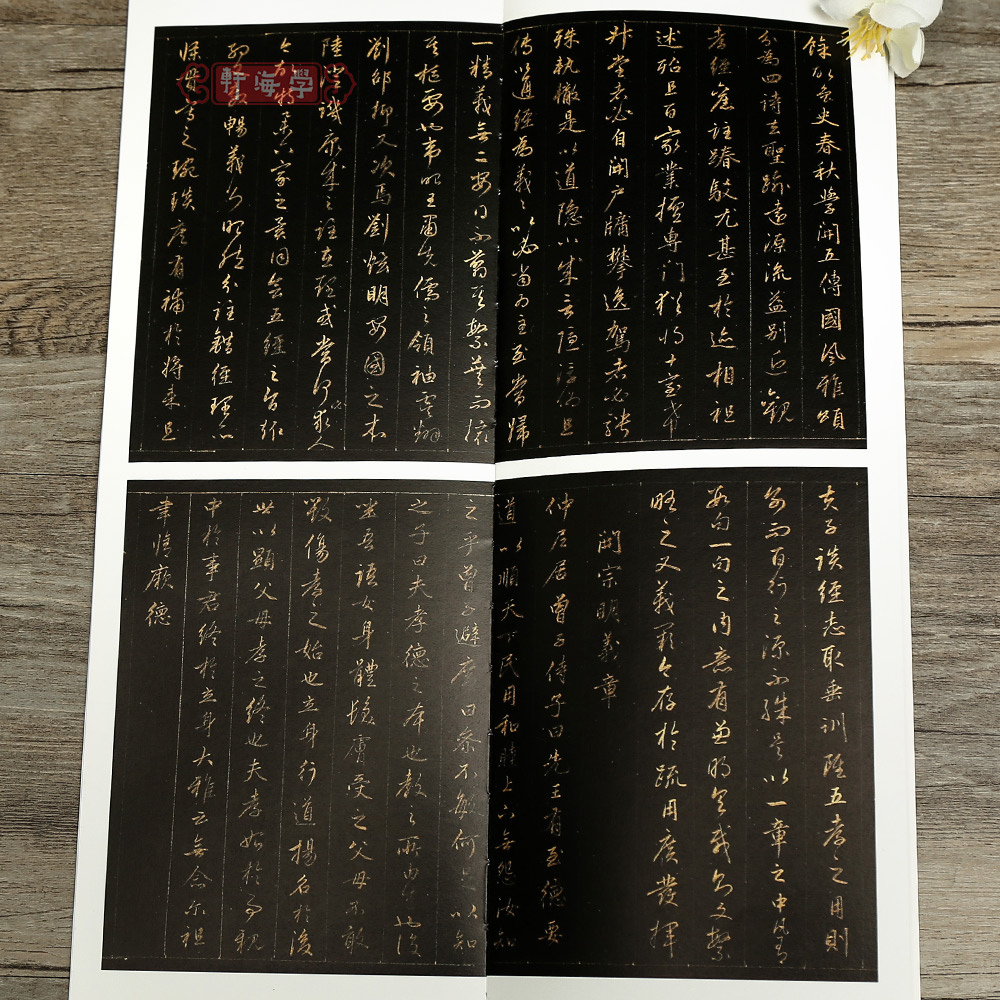 餘故魯史春秋學開五傳國風雅頌
分為四詩去聖逾遠源流益別近觀
孝經舊註踳駁尤甚至於迹相祖
述殆且百家業擅專門猶將十室希
升堂者必自開戶牖攀逸駕者必騁
殊軌轍是以道隱小成言隱浮偽且
傳以通經為義義以必當為主至當歸
一精義無二安得不翦其繁蕪而撮
其樞要也韋昭王肅先儒之領袖虞翻
劉邵抑又次焉劉炫明安國之本
陸澄譏康成之註在理或當何必求人
今故特舉六家之異同會五經之旨趣
約文敷暢義則昭然分註錯經理亦
條貫寫之琬琰庶有補於將來且
夫子談經志取垂訓雖五孝之用則
別而百行之源不殊是以一章之中凡有
數句一句之內意有兼明具載則文繁
略之又義闕今存於疏用廣發揮
開宗明義章
仲尼居曾子侍子曰先王有至德要
道以順天下民用和睦上下無怨汝知
之乎曾子避席曰參不敏何足以知
之子曰夫孝德之本也教之所由生也復
坐吾語女身體髮膚受之父母不敢
毀傷孝之始也立身行道揚名於後
世以顯父母孝之終也夫孝始於事親
中於事君終於立身大雅云無念爾祖
聿脩厥德
軒海學